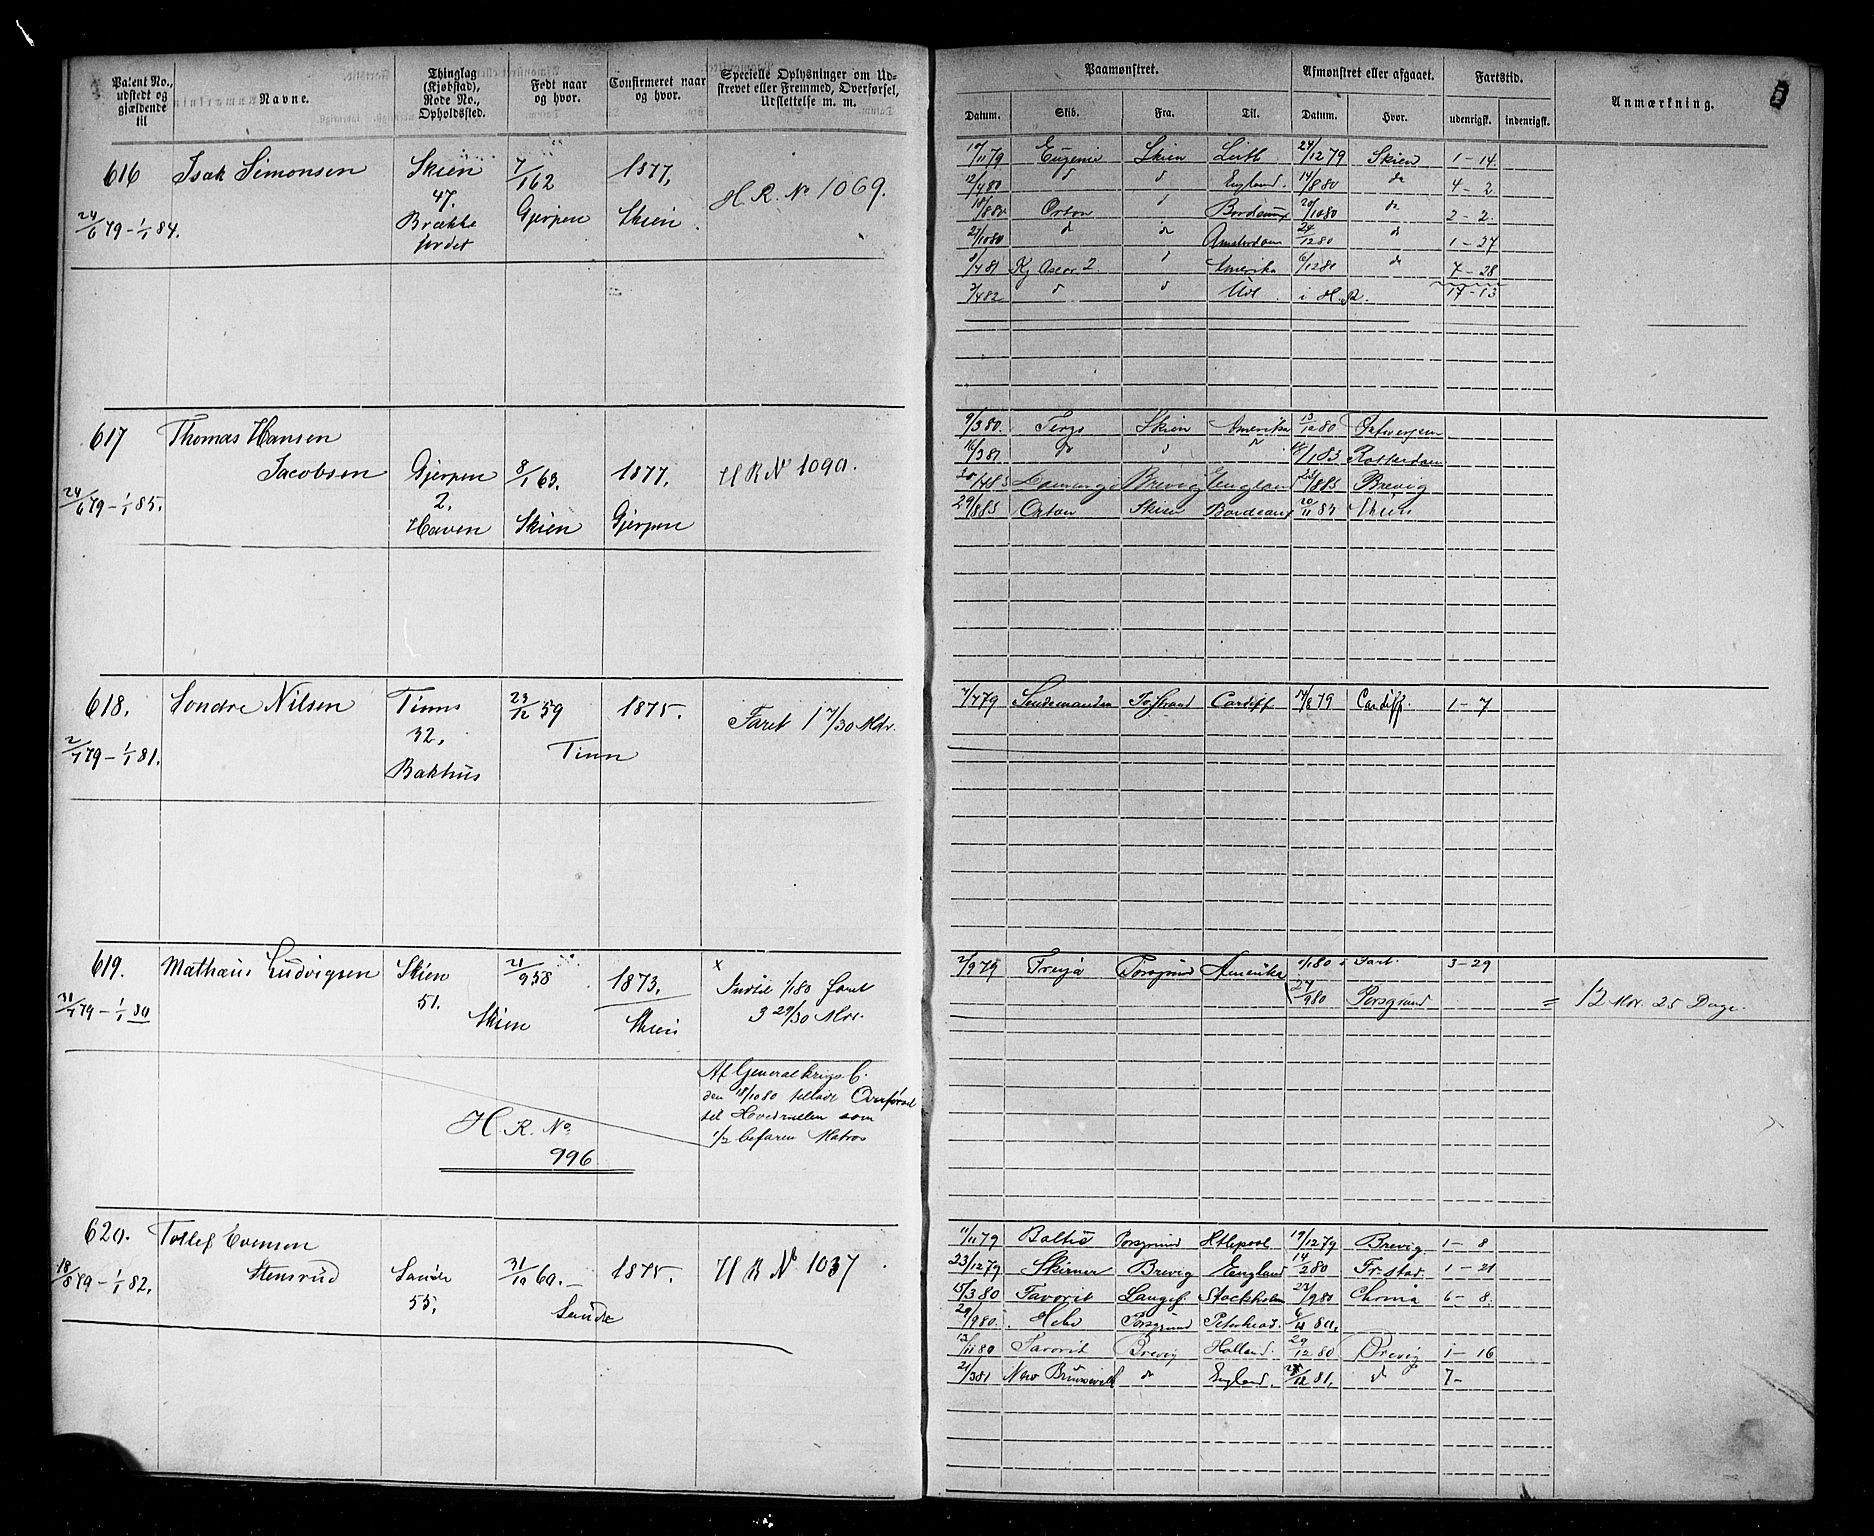 Patent No., udstedt og gjældende til
Navne.
Thinglag (Kjøbstad), Rode No., Opholdssted.
Født naar og hvor.
Confirmeret naar og hvor.
Specielle Oplysninger om Udstrevet eller Fremmed, Overførsel, Udslettelse m. m.
Paamønstret.
Afmønstret eller afgaaet.
Fartstid.
Anmærkning.
Datum. Skib. Fra. Til. Datum. Hvor. udenrigsk. indenrigsk.
5
616 Isak Simonsen Skien 7/1 62 1877, H. R. No 1069.
47.
24/6 79 – 1/1 84. Brække Gjerpen Skien
jordet
10/11 79 Eugenie Skien Leith 24/12 79 Skien 1 - 14.
12/4 80 do do England. 14/8 80 do 4 - 2
18/8 80 Orion Bordeaux 20/10 80 do 2 - 2.
27/10 80 do do Amsterdam 24/12 80 do 1 - 27
9/4 81 Amerika 6/12 81 do 7 - 28
3/4 82 do do Udl i H. R. 17 - 13
617 Thomas Hansen
Jacobsen Gjerpen 8/1 63. 1877. H R No 1090.
24/6 79 – 1/1 85. 2.
Haven Skien Gjerpen
9/3 80. Skien Amerika 13/12 80
16/3 81 do 18/1 83 Rotterdam
20/4 83 Brevig England 23/8 83 Brevig
29/8 83 Orion Skien Bordeaux 20/11 83 Skien
618. Sondre Nilsen Tinns 23/12 59 1875. Faret 1 7/30 Mdr.
32,
2/7 79 – 1/1 81. Bakhus Tinn
7/7 79 Cardiff 14/8 79 Cardiff. 1 - 7
619. Mathæus Ludvigsen Skien 21/9 58 1873, x
51. Indtil 1/1 80 faret
31/7 79 – 1/1 80 Skien Skien 3 29/30 Mdr.
Af Generalkrigs C.
den 18/10 80 tilladt Overførsel
til Hovedrullen som
1/2 befaren Matros
H. R. No.
996
2/9 79 Freyja Porsgrund Amerika 1/1 80 Fart. 3 - 29
27/9 80 Porsgrund = 12 Mdr. 25 Dage.
620. Tollef Evensen
Stensrud Saude 31/10 60. 1875. H R No 1037
18/8 79 – 1/1 82. 55,
Saude
11/11 79 Baltic Porsgrund Htlepool 19/12 79 Brevig 1 - 8
23/12 79 Skirner Brevig England 14/2 80 Fr.stad 1 - 21
15/3 80 Favorit Langes. Stockholm 22/9 80 6 - 8.
29/9 80. Hebe Porsgrund Peterhead.
13/11 80 Favorit Brevig Holland. 29/12 80 Brevig 1 - 16
21/3 81 New Brunswick do England. 81. do 7 -